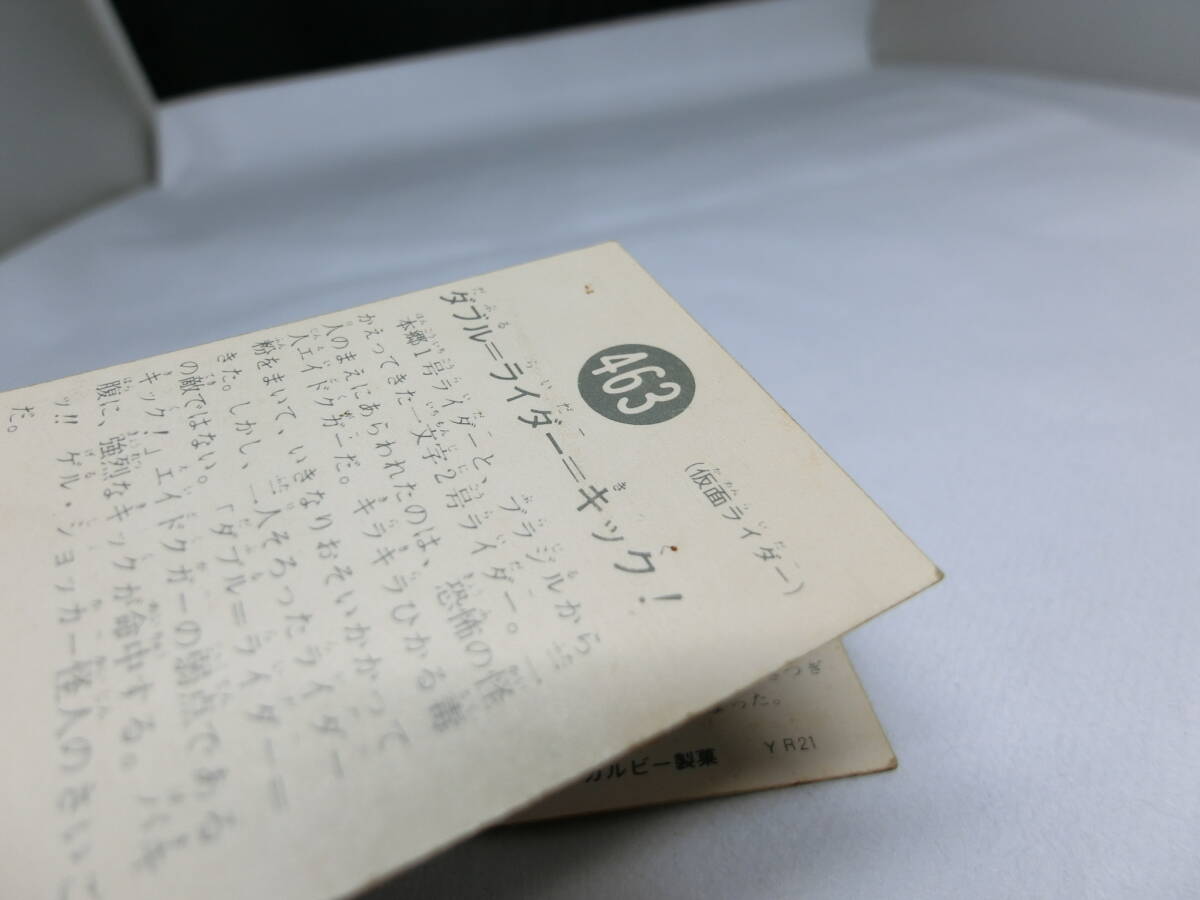 463
(仮面ライダー)
ダブル=ライダー=キック!
ブラジルから
かえってきた一文字2号ライダー。
本郷1号ライダーと、
人のまえにあらわれたのは、恐怖の怪
人エイドクガーだ。キラキラひかる毒
粉をまいて、いきなりおそいかかって
きた。しかし、二人そろったライダー
の敵ではない。「ダブル=ライダー=
キック!」エイドクガーの弱点である
腹に、強烈なキックが命中する。バキ
ッ!! ゲル・ショッカー怪人のさいご
だ。
った。
カルビー製菓
YR21